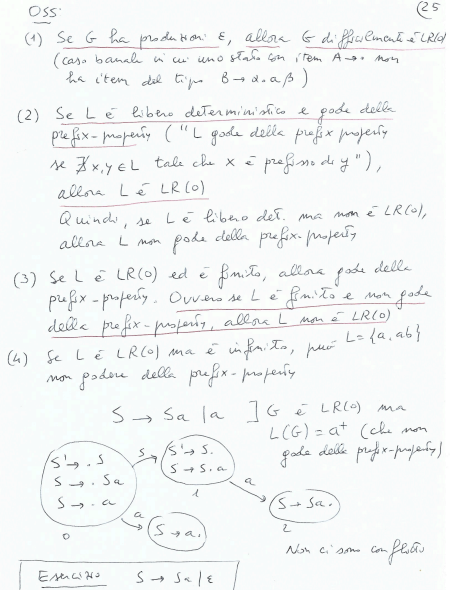 OSS: (25
(1) Se G ha produzioni ε, allora G difficilmente è LR(0)
(caso banale in cui uno stato con item A → . non
ha item del tipo B → α.aβ)
(2) Se L è libero deterministico e gode della
prefix-property ("L gode della prefix property
se ∄ x,y ∈ L tale che x è prefisso di y"),
allora L è LR(0)
Quindi, se L è libero det. ma non è LR(0),
allora L non gode della prefix-property
(3) Se L è LR(0) ed è finito, allora gode della
prefix-property. Ovvero se L è finito e non gode
della prefix-property, allora L non è LR(0)
(4) Se L è LR(0) ma è infinito, può L={a,ab}
non godere della prefix-property
S → Sa | a ] G è LR(0) ma
L(G) = a⁺ (che non
gode della prefix-property)
S' → .S
S → .Sa
S → .a
0
S
S' → S.
S → S.a
1
a
S → Sa.
2
a
S → a.
Non ci sono conflitti
Esercizio S → Sa | ε